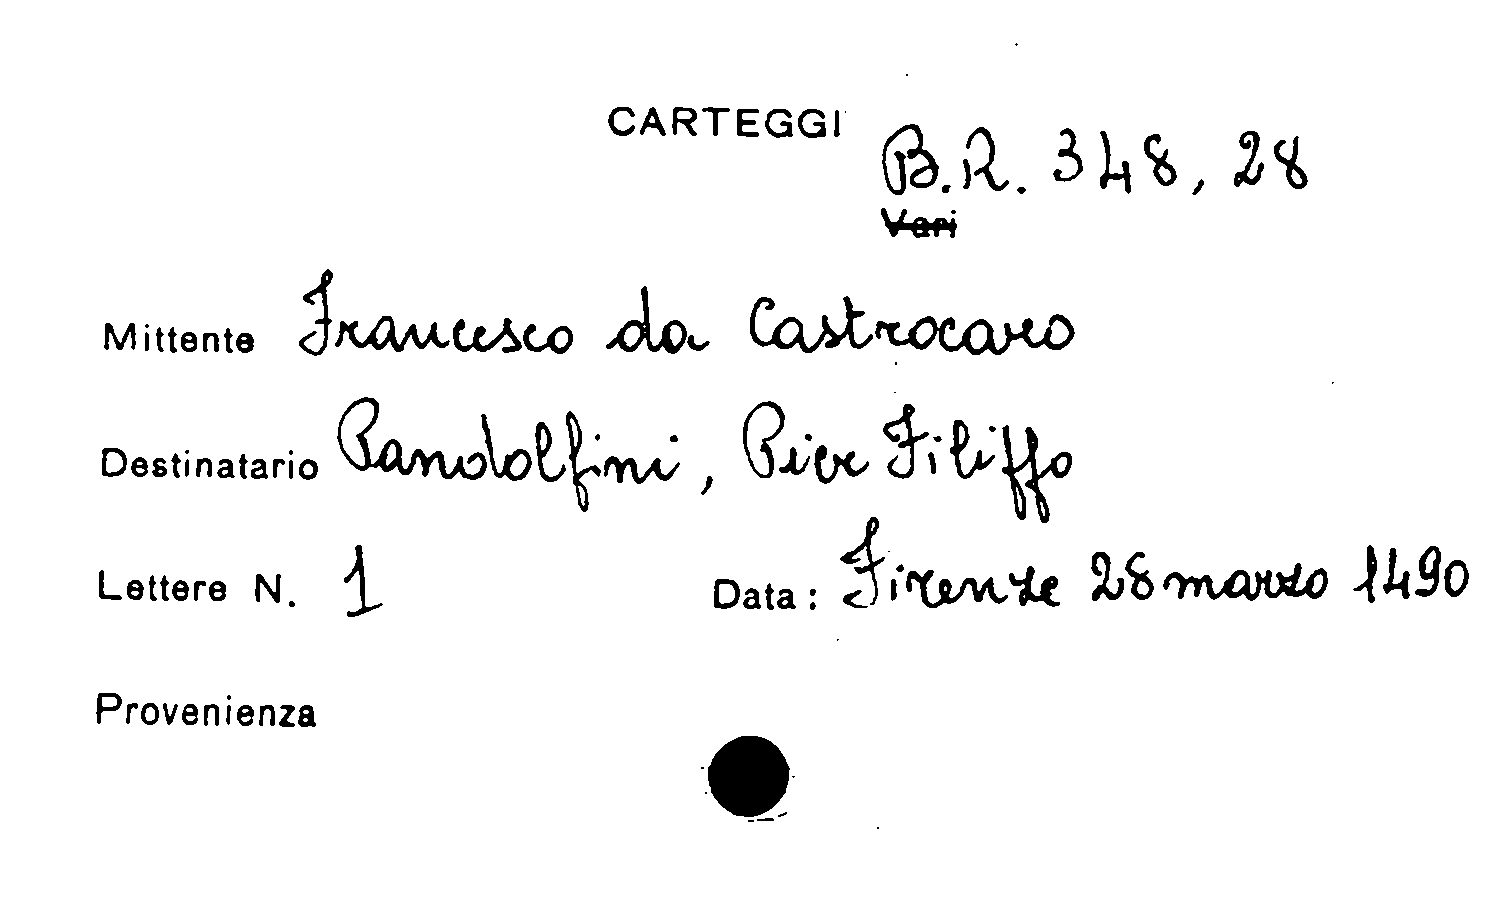 CARTEGGI
B.R. 348, 28
Vari
Mittente Francesco da Castrocaro
Destinatario Pandolfini, Pier Filippo
Lettere N. 1 Data: Firenze 28 marzo 1490
Provenienza